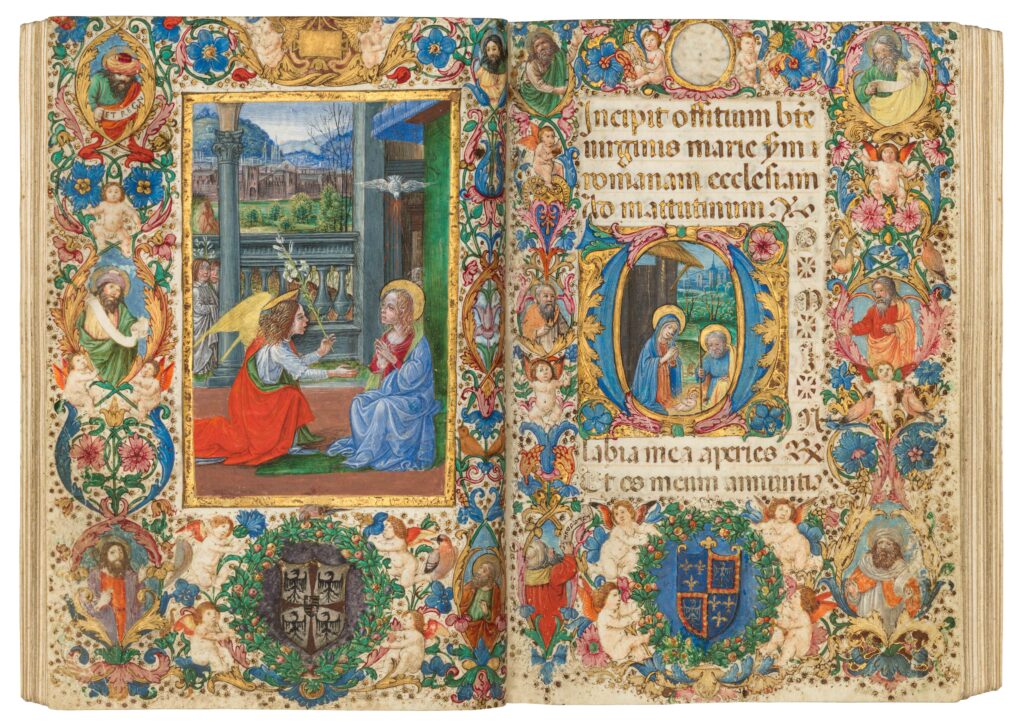 Incipit offitium bte
uirginis marie
romanam ecclesiam
mattutinum
D
labia mea aperies
Et os meum annuntia